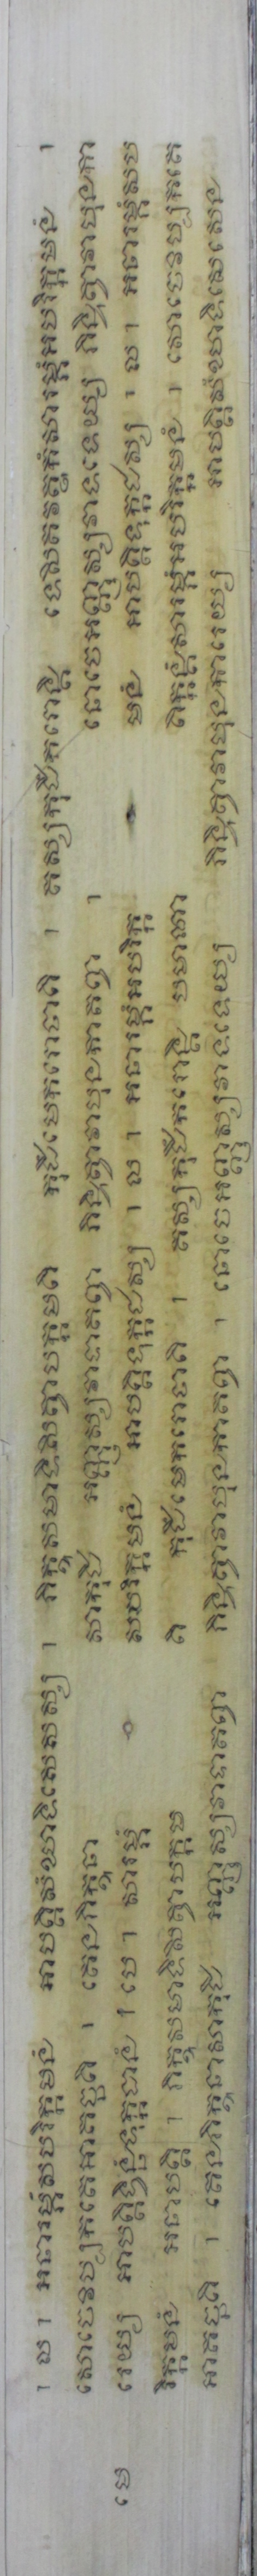 ។ ល ។ អនារម្ភំសបរិក្កមនំ អាបត្តិសំឃាទិសេសស្ស ។ ភិក្ខុសមាទិសិត្វាបក្កមតិ កុដឹមេករោថាតិ ។ តស្សកុដឹករោន្តិ ទេសិតវត្ថុកំសារម្ភំអបរិក្កមនំ ។
សោចេវិប្បកតេអាគច្ឆតិ ។ តេនភិក្ខុនា សាកុដិ អញ្ញស្សវាទាតព្វា ភិន្ទិត្វាវាបុនកាតព្វា ។ នោចេអញ្ញស្សវាទទេយ្យ ភិន្ទិត្វាវាបុនកា
មេ រេយ្យ អាបត្តិទ្វិន្នំទុក្កដានំ ។ បេ ។ សារម្ភំ សបរិក្កមនំ អាបត្តិទុក្កដស្ស ។ ល ។ អនារម្ភំអបរិក្ក មនំ អាបត្តិទុក្កដស្ស ។ ល ។ អនារម្ភំសប
រិក្កមនំ អនាបត្តិ ។ ភិក្ខុសមាទិសិត្វាបក្កម តិ កុដឹមេករោថាតិ ។ តស្សកុដឹករោន្តិ បមាណា តិក្កន្តំសារម្ភំអបរិក្កមនំ ។ សោចេវិប្បកតេ
អាគច្ឆតិ ។ តេនភិក្ខុនាសាកុដិ អញ្ញស្សវាទាតព្វា ភិន្ទិត្វាវាបុនកាតព្វា ។ នោចេអញ្ញស្សវាទទេយ្យ ភិន្ទិត្វាវាបុនការេយ្យ អាបត្តិសំឃាទិសេសេន